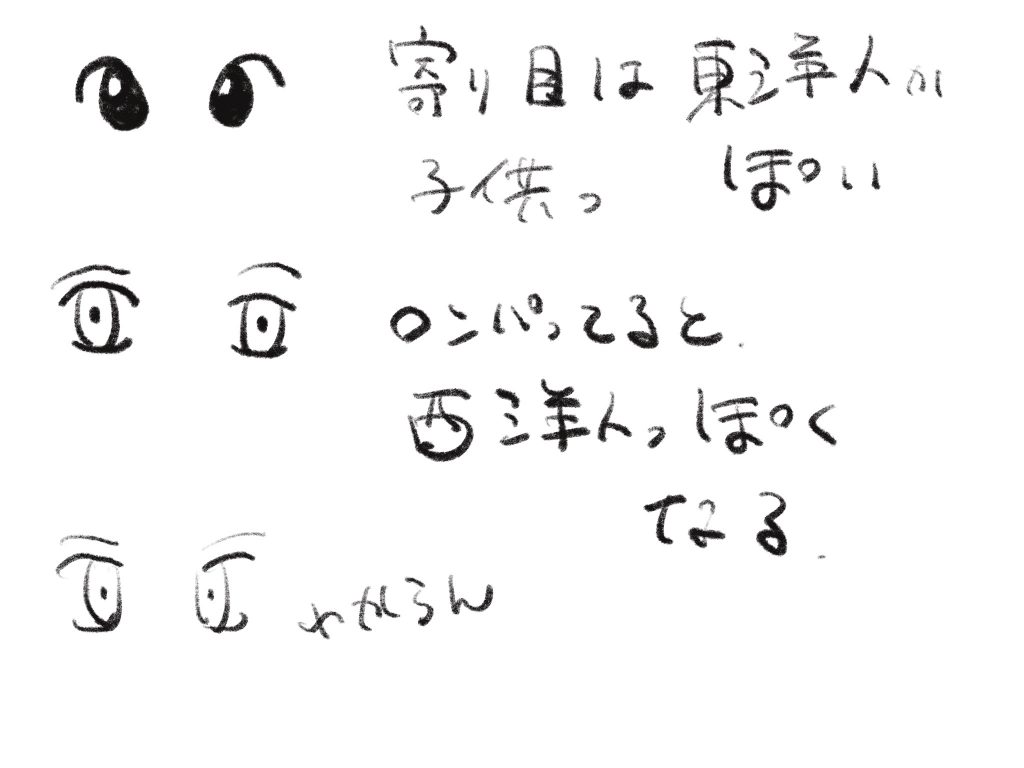 寄り目は東洋人か
子供っぽい
ロンパってると.
西洋人っぽく
なる.
わからん